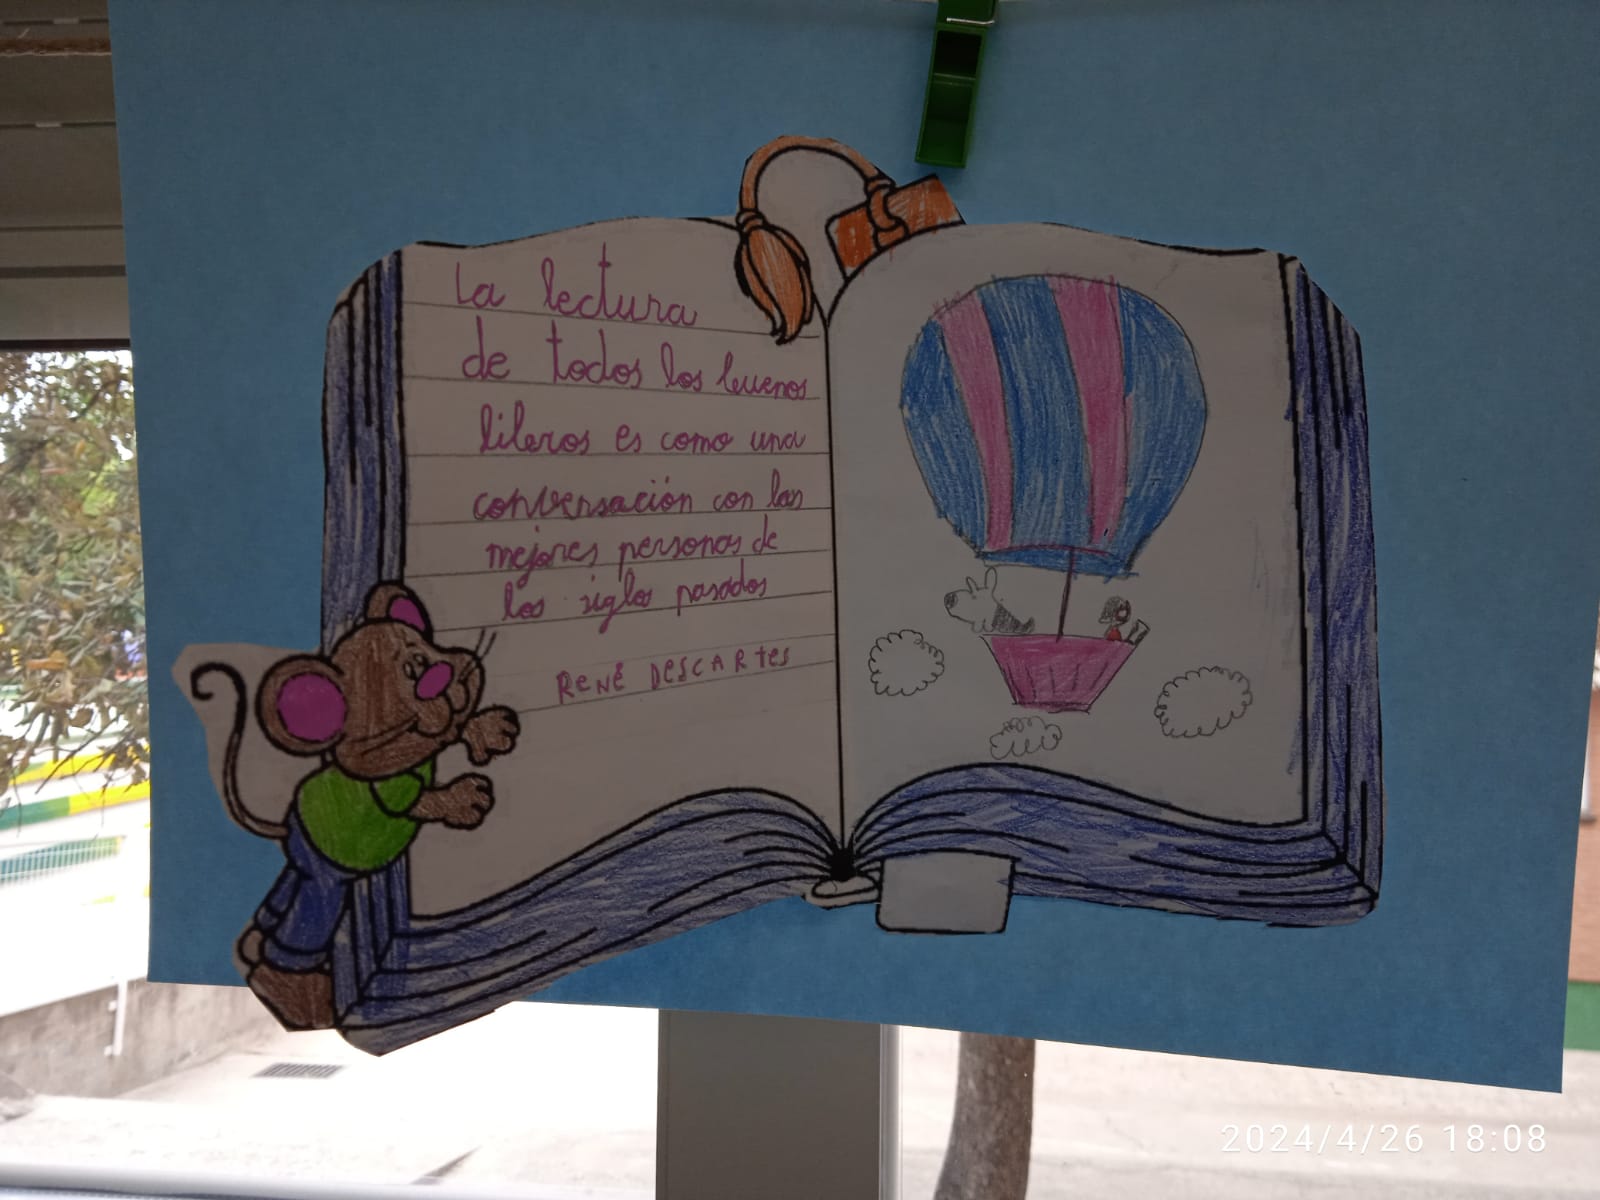 La lectura
de todos los buenos
libros es como una
conversación con las
mejores personas de
los siglos pasados
RENÉ DESCARTES
2024/4/26 18:08